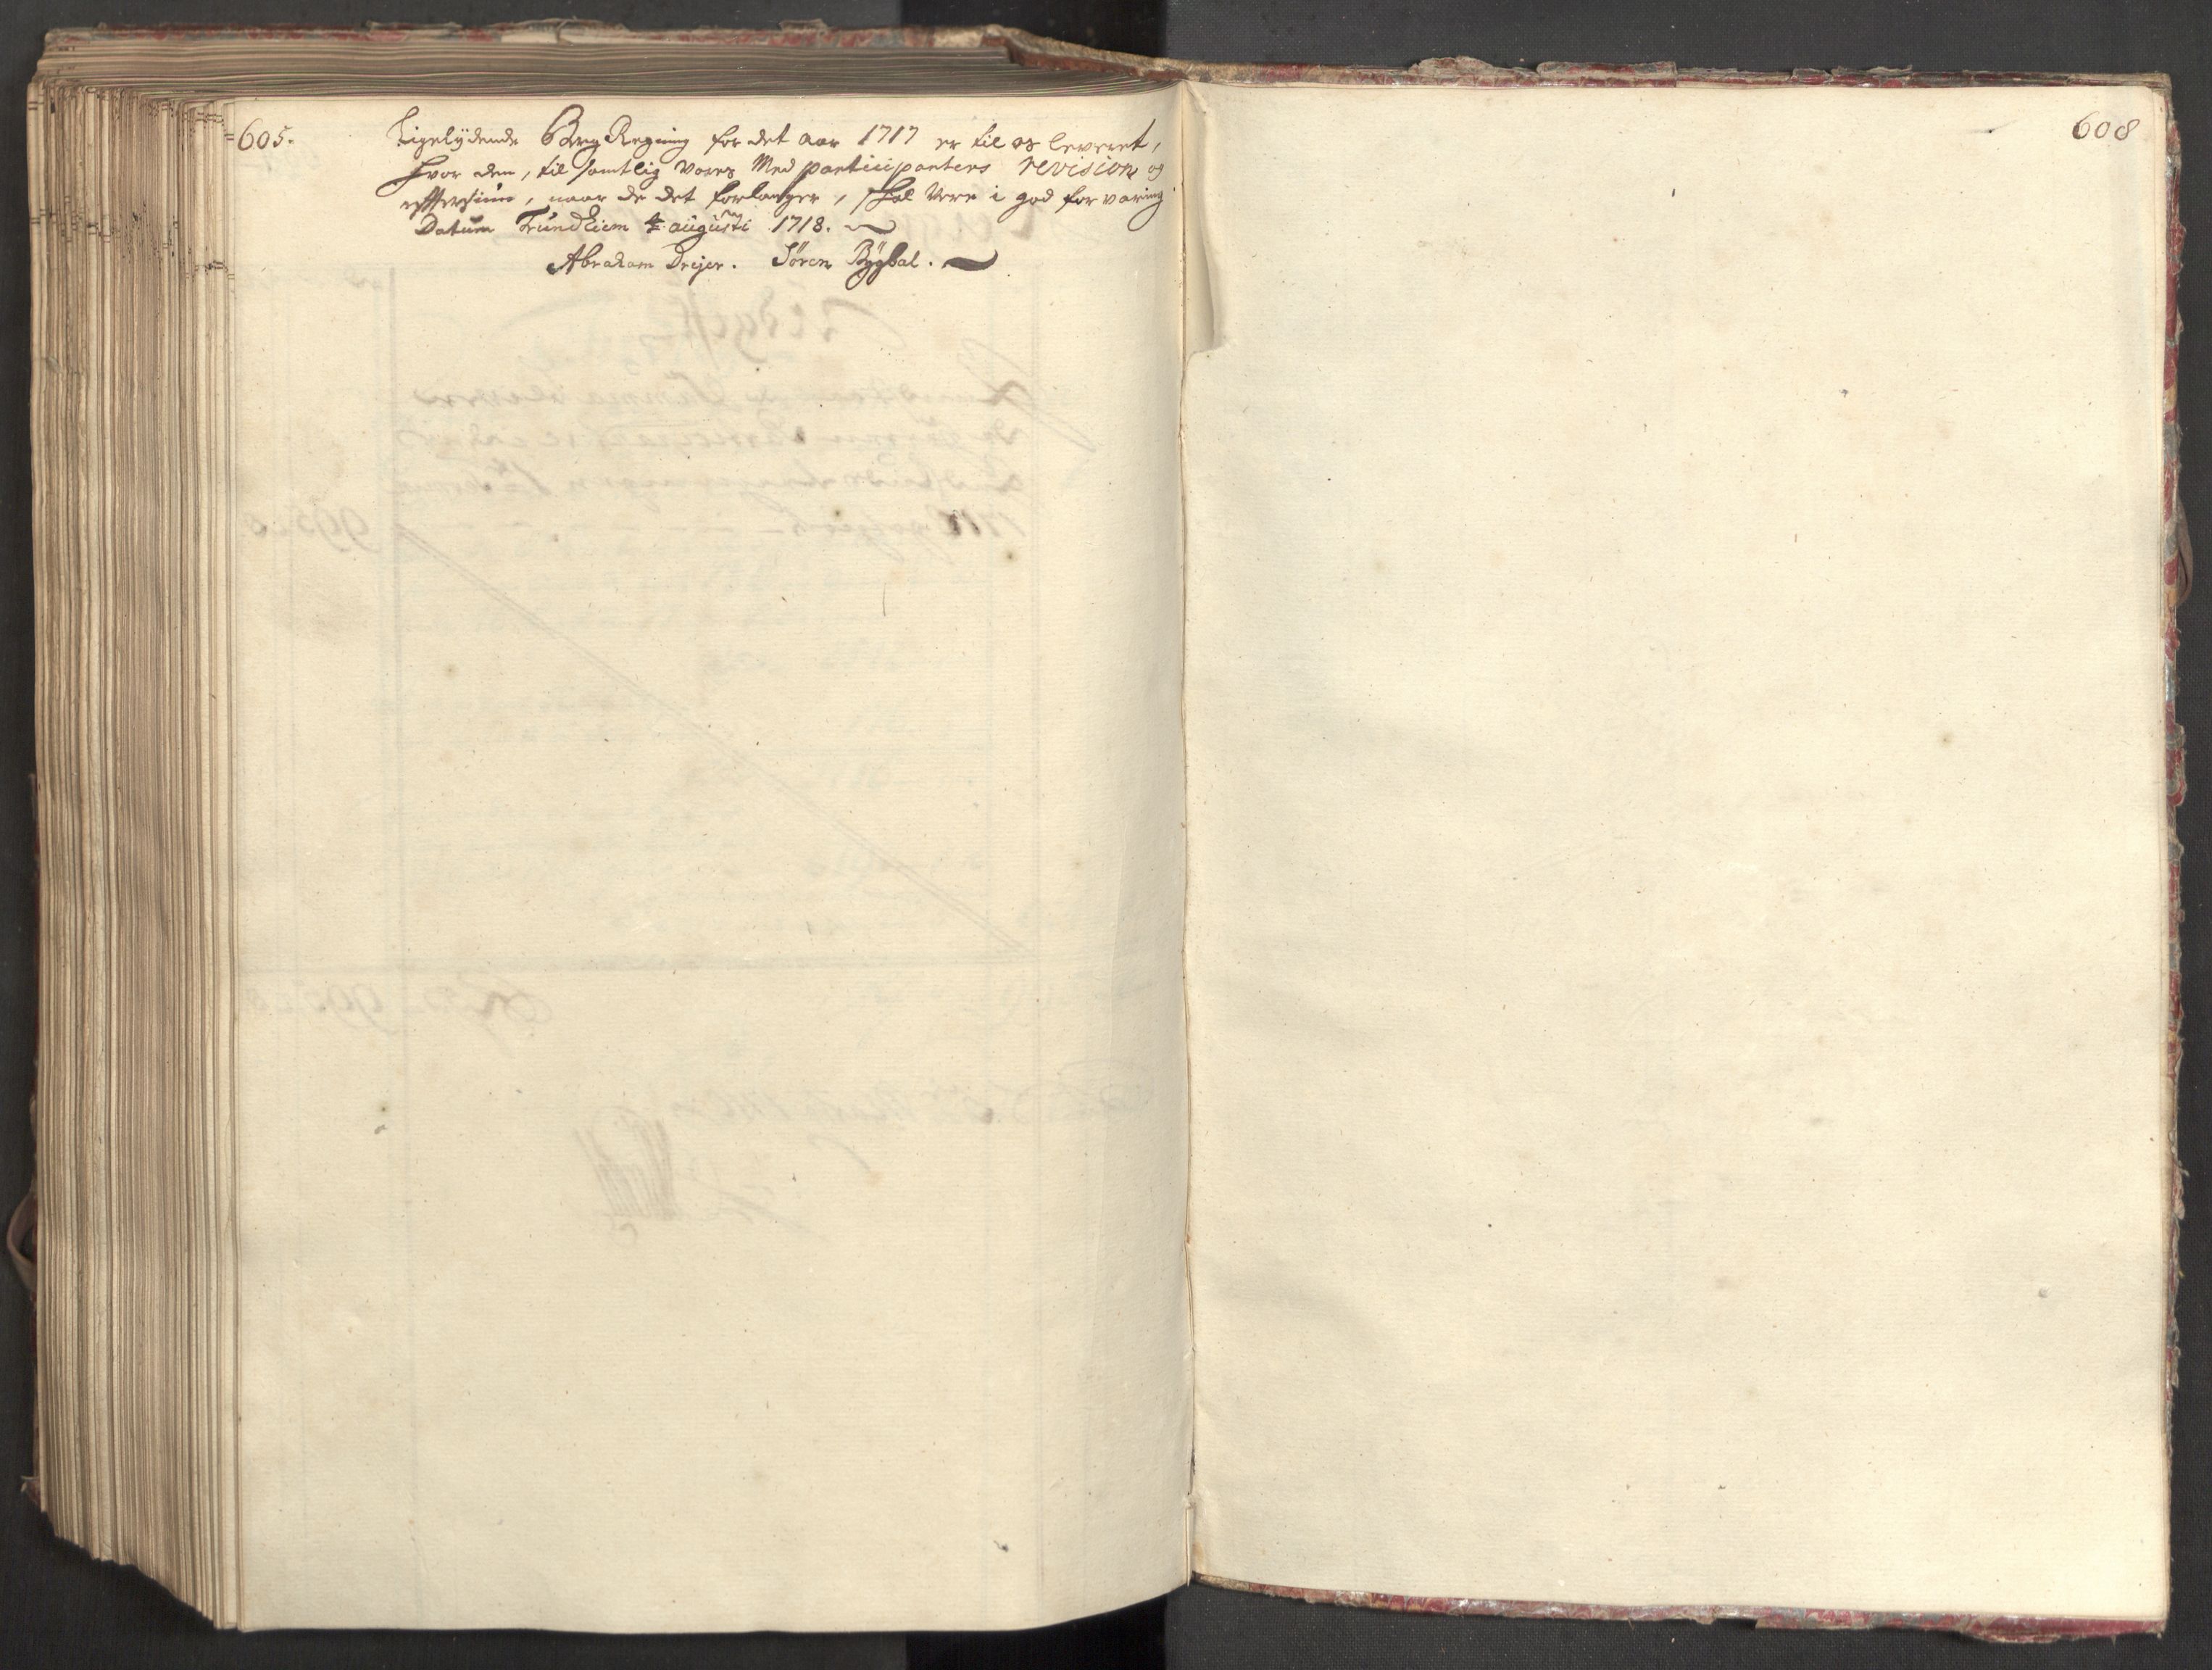 605.
Ligelÿdende Berg Regning for det aar 1717 er til os leveret,
hvor den, til samtlig vores Med participanters revision og
efftersiun, naar de det forlanger, skal vere i god forvaring
Datum Trundhiem 4 augusti 1718.
Abraham Drejer. Sören Bÿgbal.
608